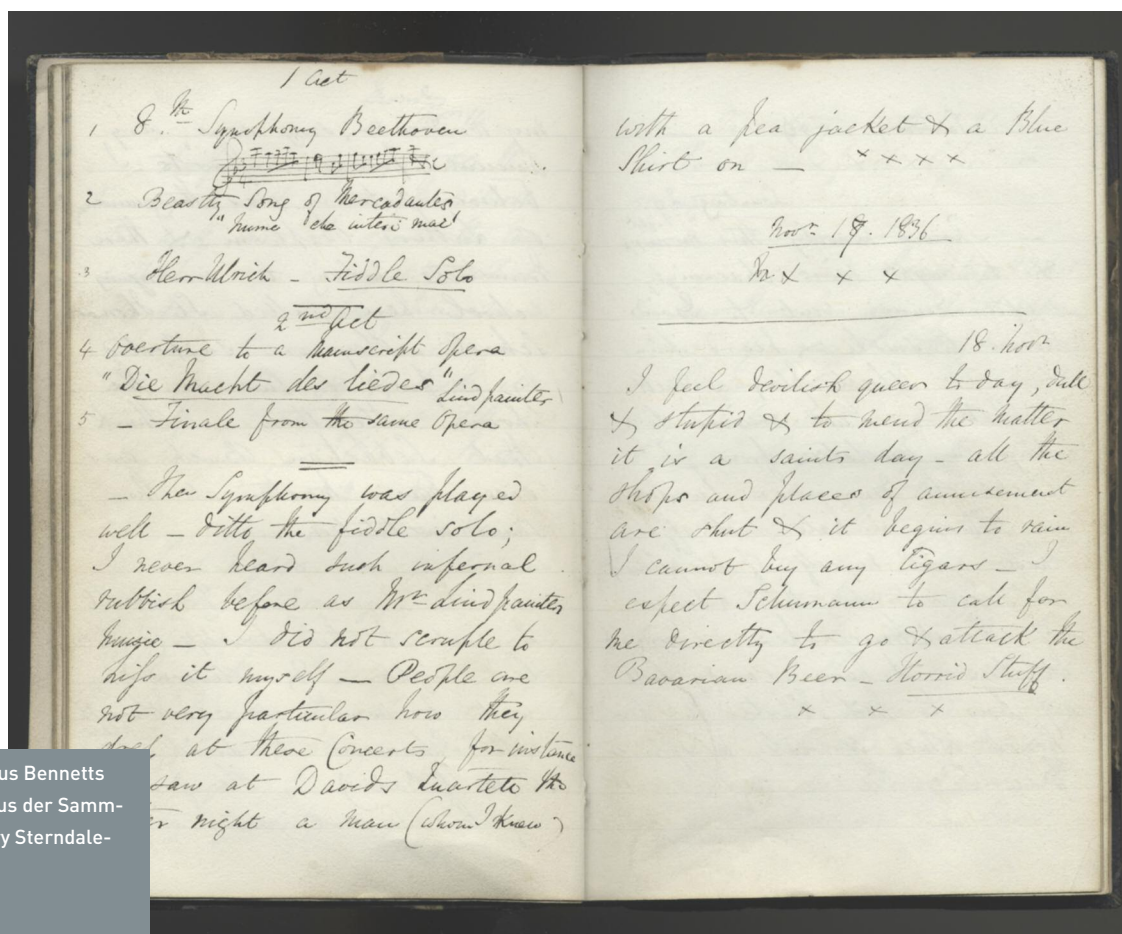 1 Act
1 8.th Symphony Beethoven
2 Beastly Song of Mercadantes
"Nume che interi mai"
3 Herr Ulrich – Fiddle Solo
2nd Act
4 Overture to a Manuscript Opera
"Die Macht des liedes" Lindpainter
5 – Finale from the same Opera
– The Symphony was played
well – ditto the fiddle solo;
I never heard such infernal
rubbish before as Mr Lindpainter
music – I did not scruple to
hiss it myself – People are
not very particular how they
at these Concerts, for instance
saw at Davids Quartett the
night a man (whom I knew)
with a pea jacket & a Blue
Shirt on – x x x x
Novr 17. 1836
x x x
18. Novr
I feel devilish queer today, dull
& stupid & to mend the matter
it is a saints day – all the
shops and places of amusement
are shut & it begins to rain
I cannot buy any Cigars – I
expect Schumann to call for
me directly to go & attack the
Bavarian Beer – Horrid Stuff.
x x x
us Bennetts
us der Samm-
y Sterndale-